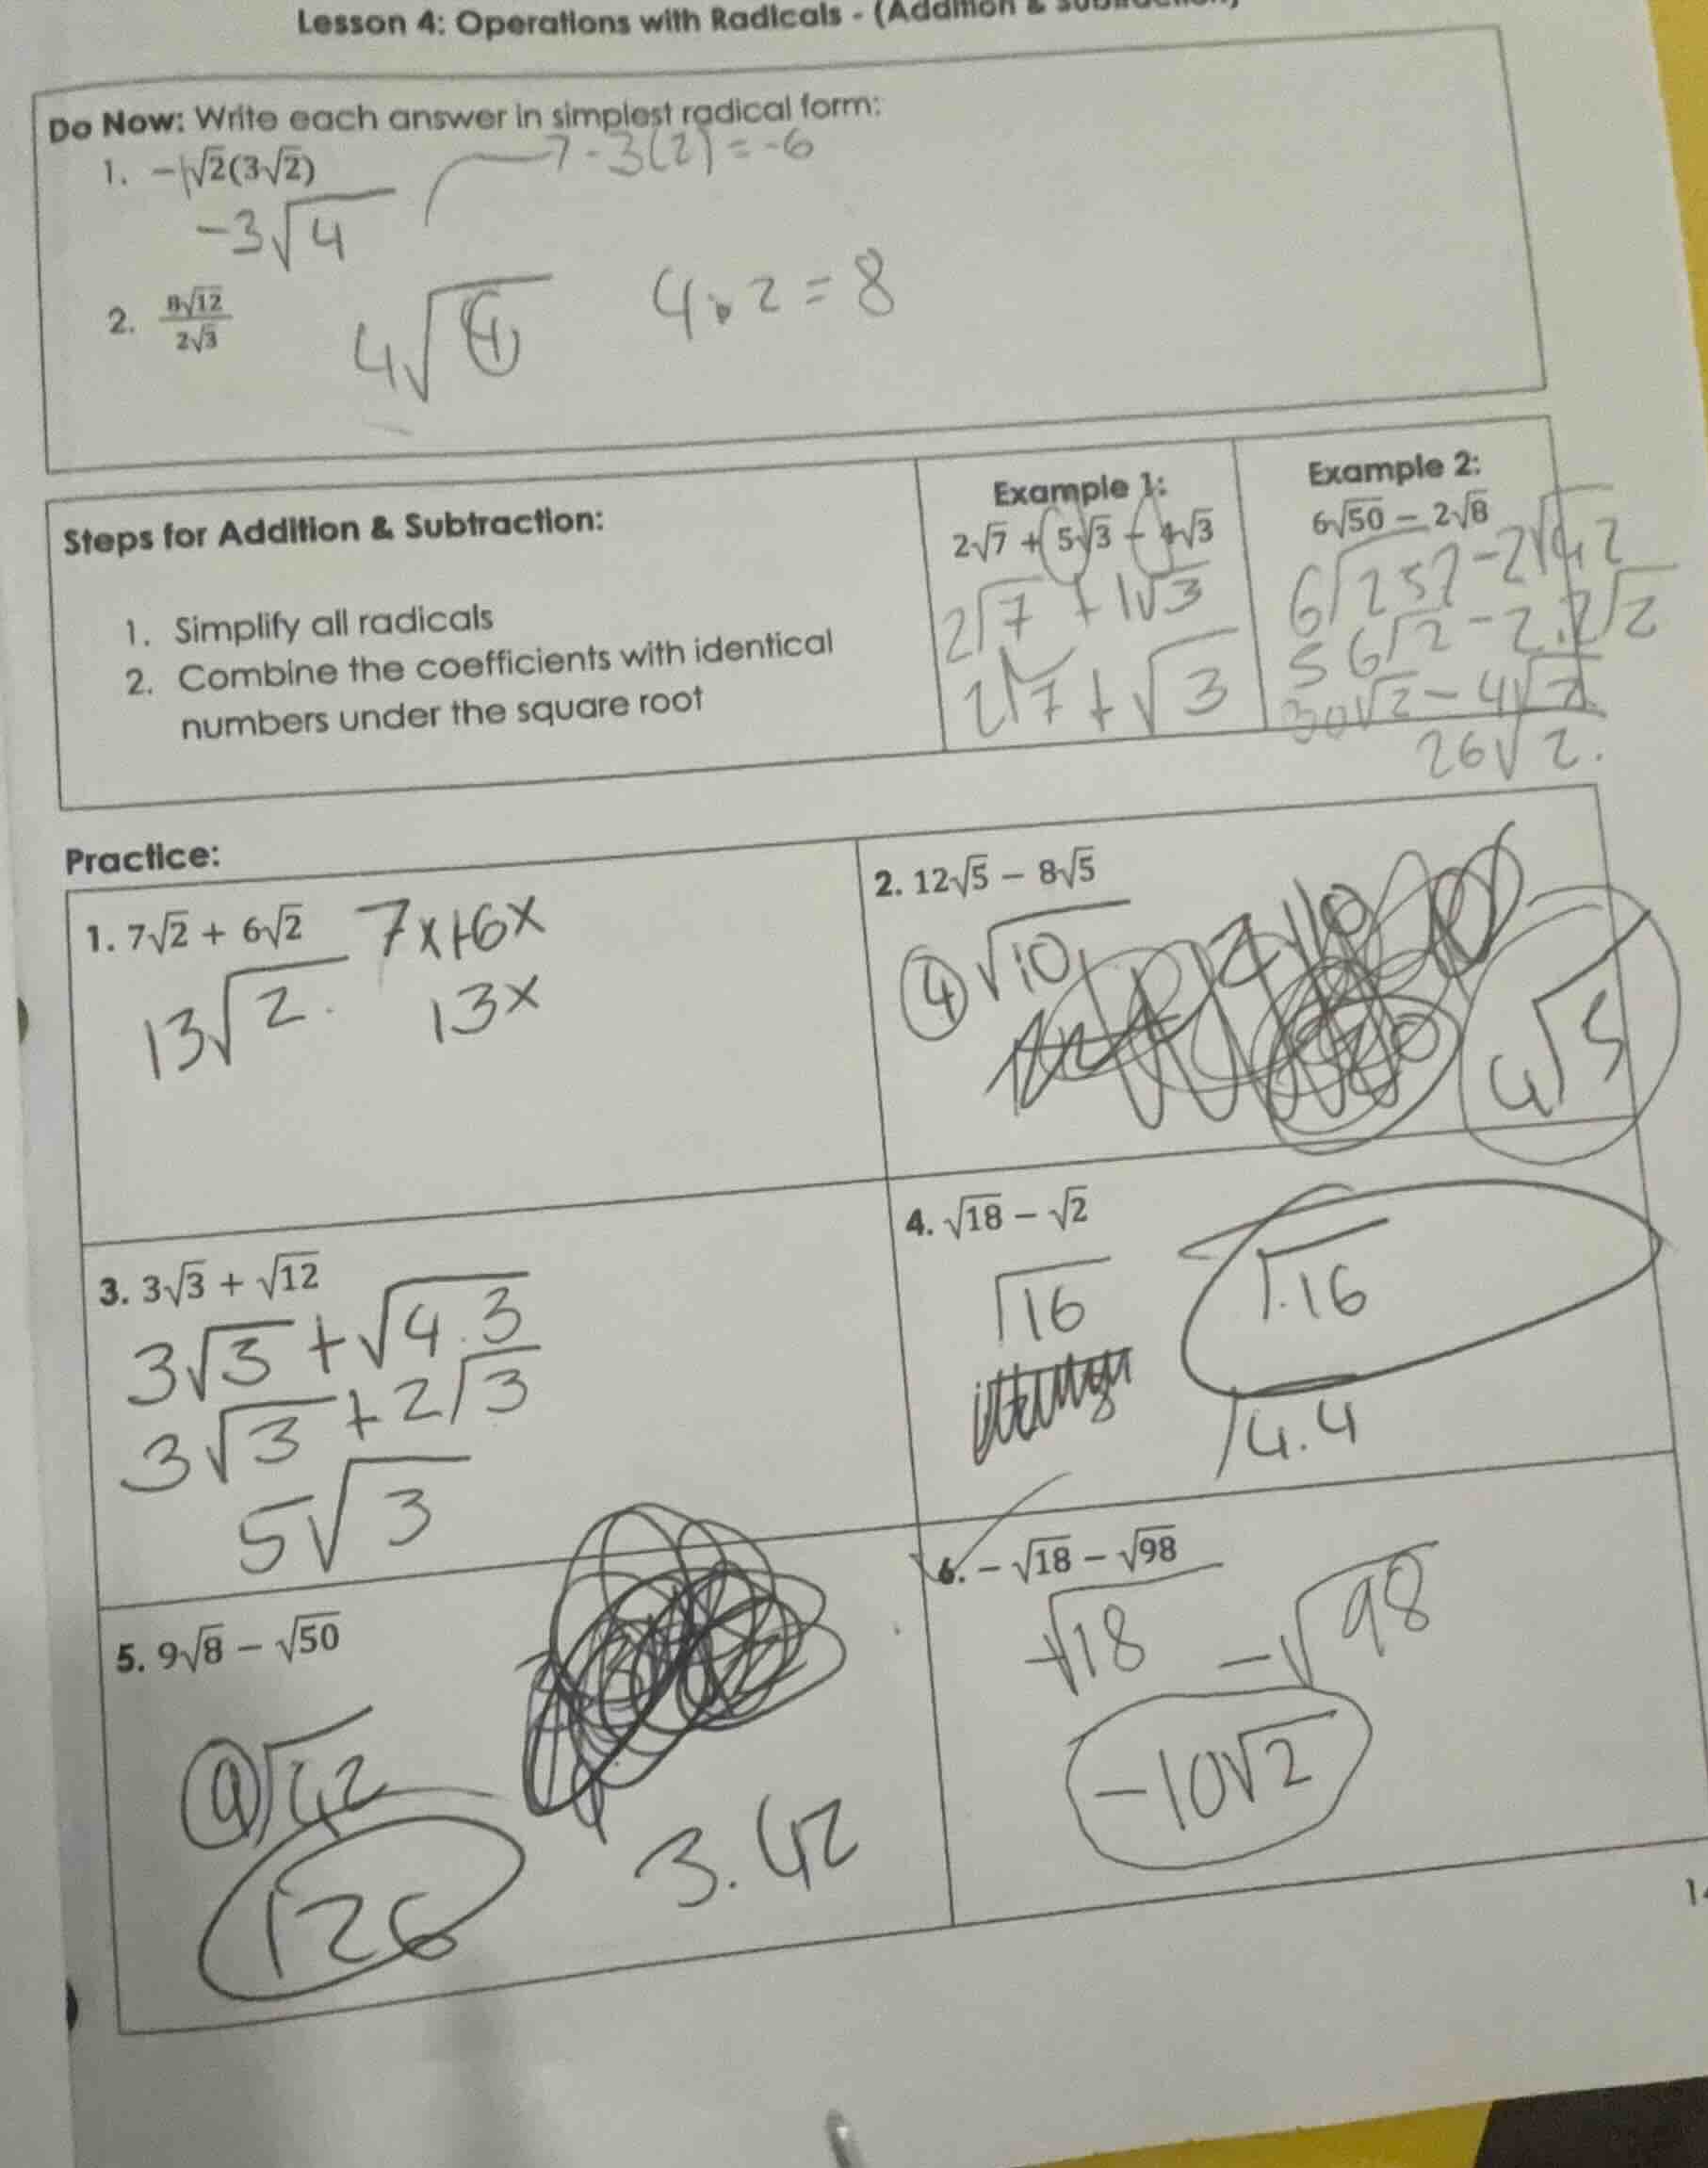 Lesson 4: Operations with Radicals - (Addition & Subtraction)
Do Now: Write each answer in simplest radical form:
1. -1√2(3√2)
-3√4
→ -3(2) = -6
2. 8√12 / 2√3
4√4
4 · 2 = 8
Steps for Addition & Subtraction:
1. Simplify all radicals
2. Combine the coefficients with identical
numbers under the square root
Example 1:
2√7 + 5√3 - 4√3
2√7 + 1√3
2√7 + √3
Example 2:
6√50 - 2√8
6√25 2 - 2√4 2
5 6√2 - 2.2√2
30√2 - 4√2
26√2.
Practice:
1. 7√2 + 6√2
7x+6x
13√2.
13x
2. 12√5 - 8√5
4√10
4√5
3. 3√3 + √12
3√3 + √4.3
3√3 + 2√3
5√3
4. √18 - √2
√16
√.16
√4.4
5. 9√8 - √50
9√42
126
3.42
6. - √18 - √98
-√18 - √98
-10√2